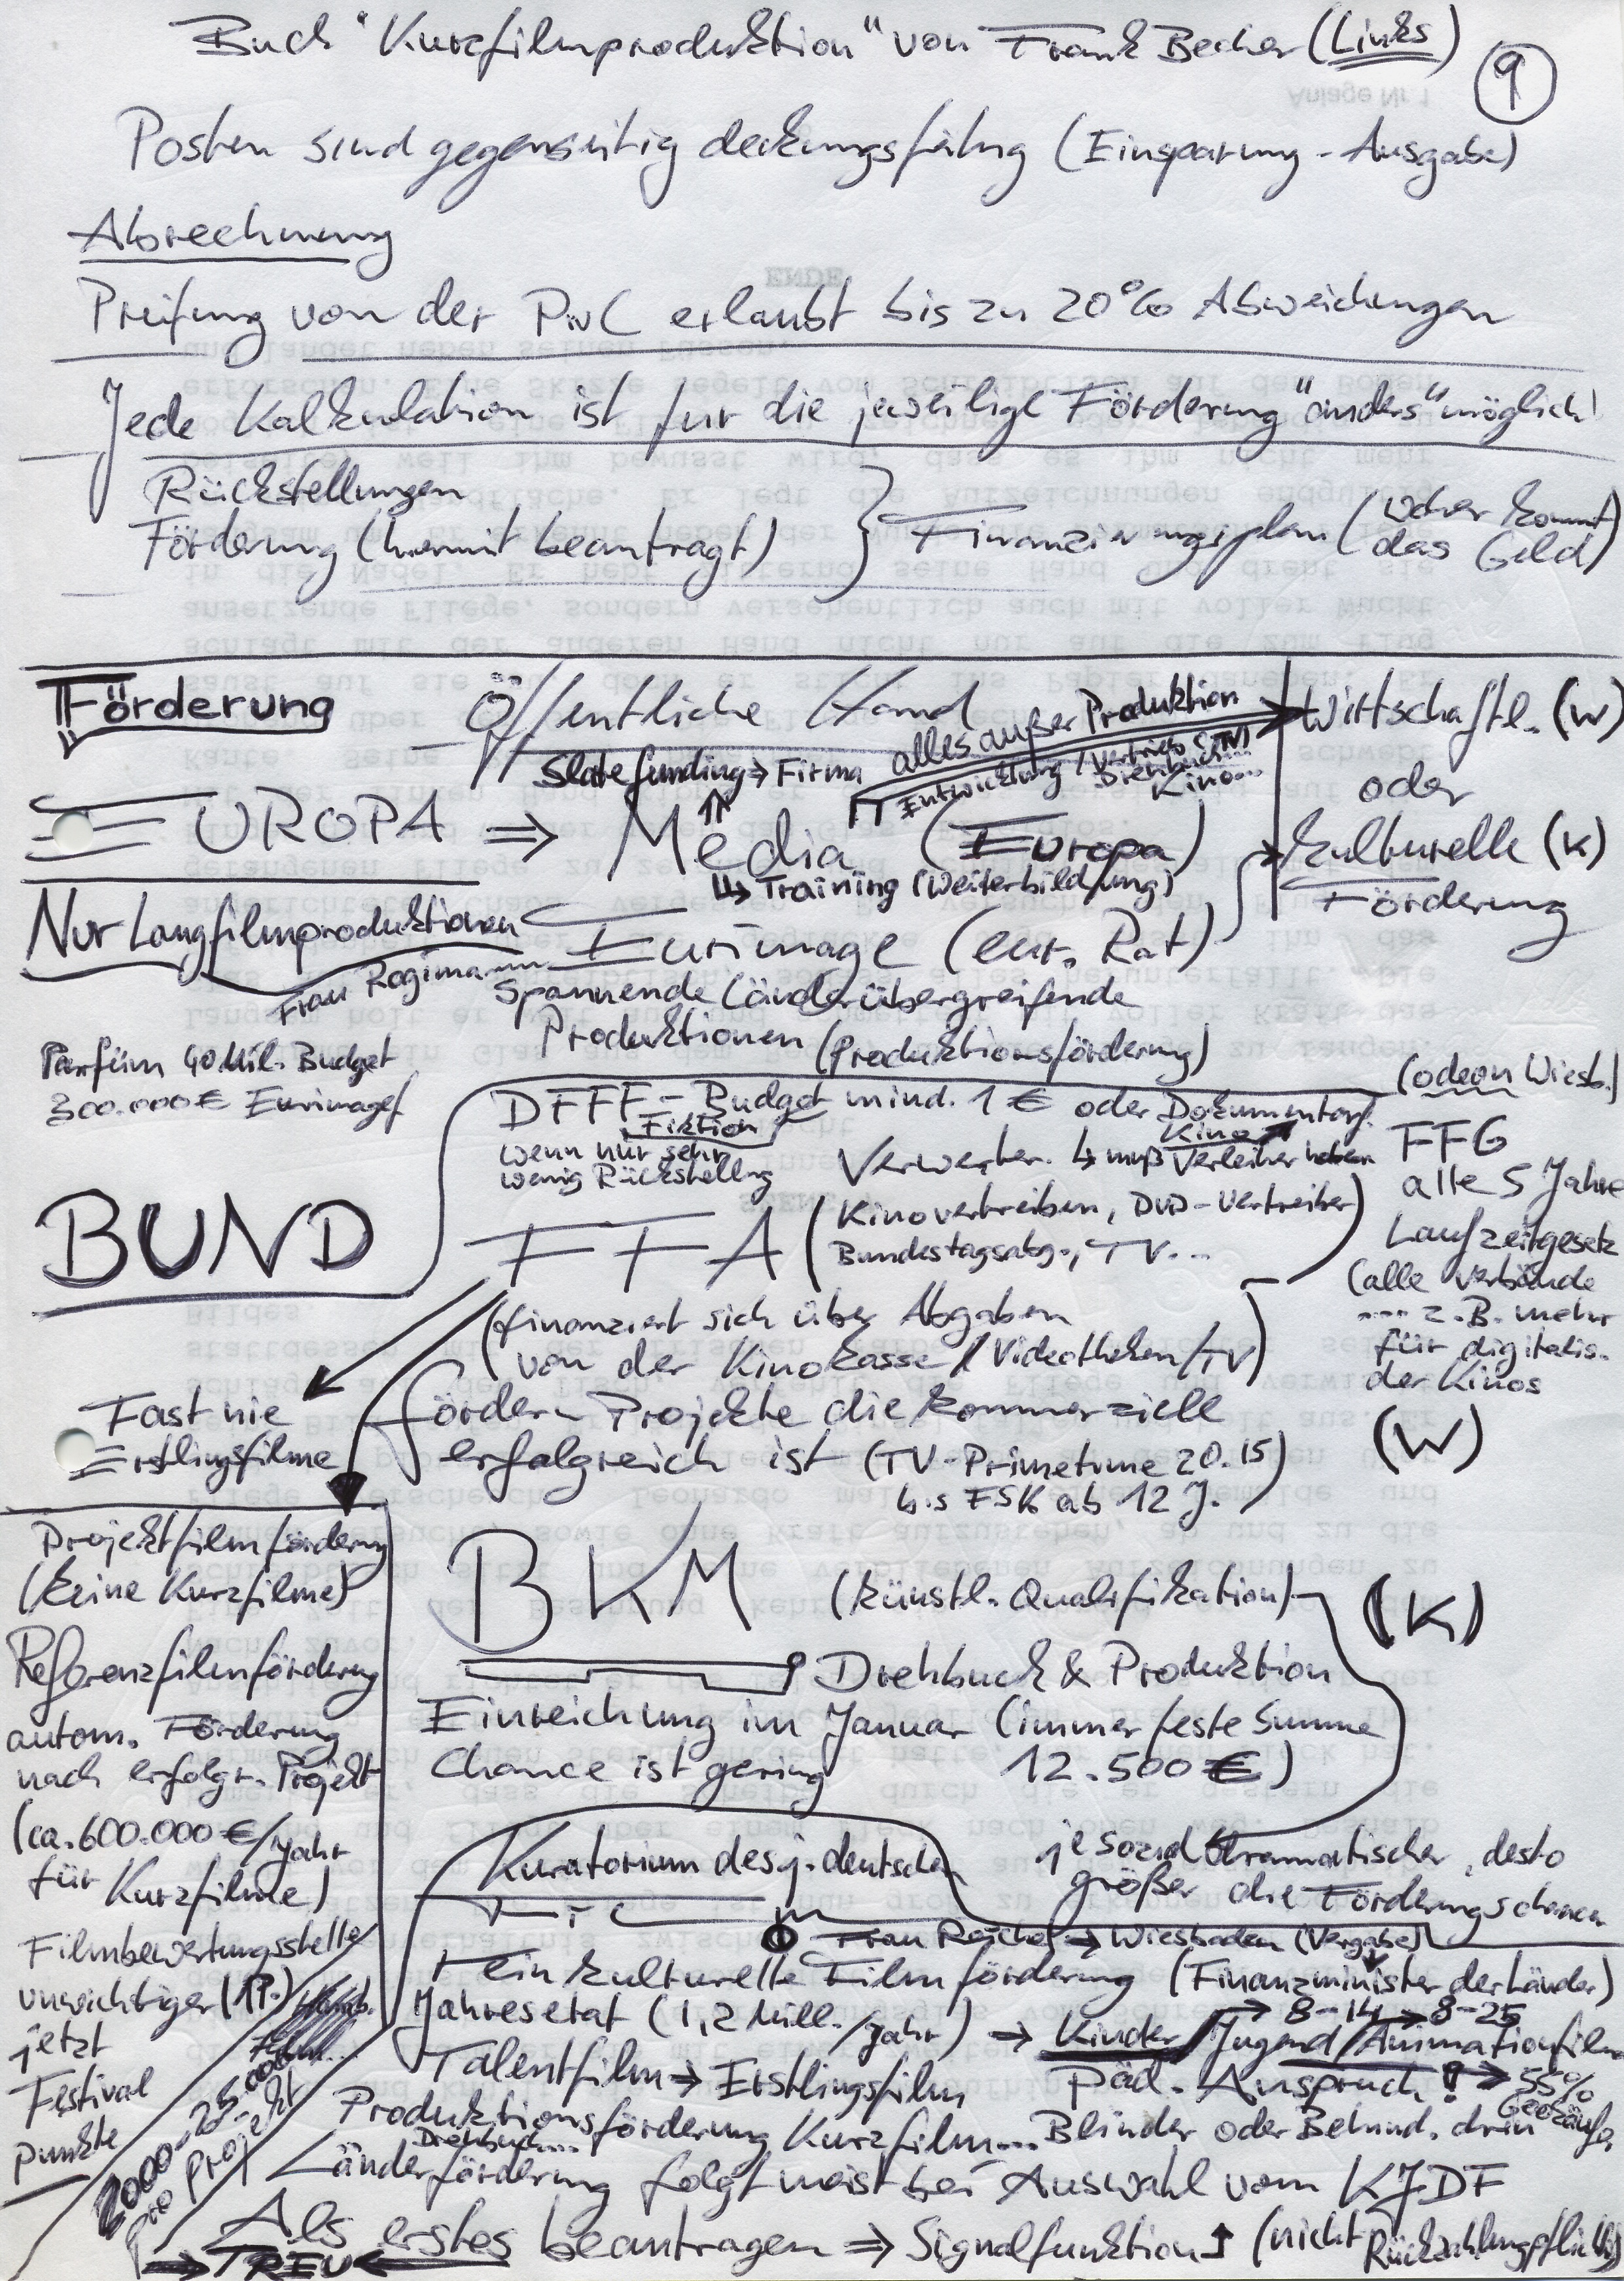 Buch "Kurzfilmproduktion" von Frank Becher (Links)
9
Anlage Nr 1
Posten sind gegenseitig deckungsfähig (Einsparung - Ausgabe)
Abrechnung
ENDE
Prüfung von der PwC erlaubt bis zu 20% Abweichungen
Jede Kalkulation ist für die jeweilige Förderung "anders" möglich!
Rückstellungen
Förderung (hiermit beantragt)
Finanzierungsplan (woher kommt
das Geld)
Förderung
Öffentliche Hand
alles außer Produktion
Wirtschaftl. (W)
oder
Kulturelle (K)
Förderung
Slatefunding → Firma
Entwicklung / Vertrieb
Drehbuch
Kino...
EUROPA ⇒ Media (Europa)
↳ Training (Weiterbildung)
Nur Langfilmproduktionen
Eurimage (eur. Rat)
Frau
Spannende Länderübergreifende
Produktionen (Produktionsförderung)
Parfüm 40 Mil. Budget
300.000€ Eurimage
DFFF - Budget mind. 1 € oder Dokumentarf.
Fiktion
Kino
wenn nur sehr
wenig Rückstellung
Verwerter. ↳ muß Verleiher haben
(odeon Wiesb.)
FFG
alle 5 Jahre
Laufzeitgesetz
(alle Verbände
.... z.B. mehr
für digitalis.
der Kinos
(W)
BUND
FFA (Kinovertreiben, DVD-Vertreiber)
Bundestagsabg., TV...
(finanziert sich über Abgaben
von der Kinokasse / Videotheken / TV)
Fast nie
Erstlingsfilme
fördern Projekte die kommerziell
erfolgreich ist (TV-Primetime 20.15
bis FSK ab 12 J.)
Projektfilmförderung
(keine Kurzfilme)
Referenzfilmförderung
autom. Förderung
nach erfolgr. Projekt
(ca. 600.000€/Jahr
für Kurzfilme)
Filmbewertungsstelle
unwichtiger (1P.)
jetzt
Festival
punkte
2000-25.000
pro Projekt
BKM (künstl. Qualifikation) (K)
Drehbuch & Produktion
Einreichung im Januar (immer feste Summe
Chance ist gering 12.500€)
je sozialdramatischer, desto
größer die Förderungschancen
Kuratorium des j. deutschen
Film
Frau → Wiesbaden (Vergabe)
rein kulturelle Filmförderung (Finanzminister der Länder)
Jahresetat (1,2 Mill./Jahr) → Kinder / Jugend / Animationfilm
→ 8-14 → 8-25
Talentfilm → Erstlingsfilm
Päd. Anspruch! → 55%
Produktionsförderung Kurzfilm... Blinder oder Behind. drin
Drehbuch...
Länderförderung folgt meist bei Auswahl vom KJDF
Als erstes beantragen ⇒ Signalfunktion ↑ (nicht Rückzahlungspflichtig)
→ TREU ←